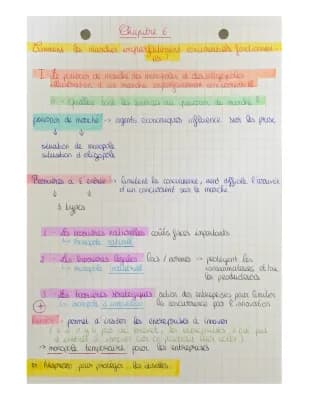 Chapitre 6
Comment les marchés imparfaitement concurrentiels fonctionnent-
ils ?
I - Le pouvoir de marché des monopoles et des oligopoles
illustration d'un marché imparfaitement concurrentiel
quelles sont les sources du pouvoir de marché ?
pouvoir de marché → agents économiques influence sur les prix
↓ ↓
situation de monopole
situation d'oligopole
Barrières à l'entrée → limitent la concurrence, rend difficile l'arrivée
d'un concurrent sur le marché
↓ ↓
3 types
1 - Les barrières naturelles coûts fixes importants
↳ monopole naturel
2 - Les barrières légales lois / normes → protègent les
consommateurs et/ou
↳ monopole institutionnel
les producteurs
3 - Les barrières stratégiques action des entreprises pour limiter
↳ monopole d'innovation la concurrence par l'innovation
+
: permet d'inciter les entreprises à innover
→ monopole temporaire pour les entreprises
pour protéger les